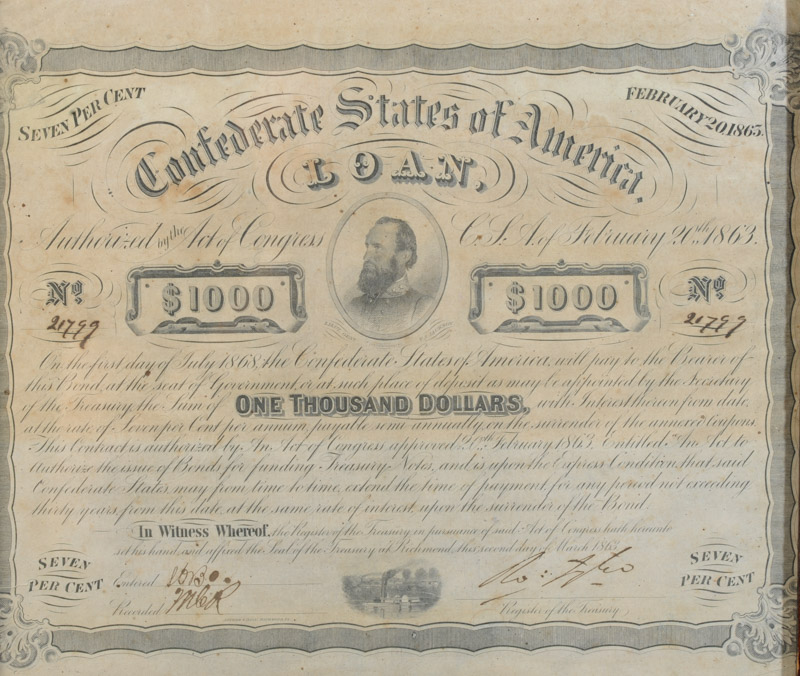 SEVEN PER CENT
FEBRUARY 20, 1863.
Confederate States of America.
LOAN,
Authorized by the Act of Congress C.S.A. of February 20th 1863.
No
21799
$1000
$1000
No
21799
On the first day of July 1868, the Confederate States of America, will pay to the Bearer of
this Bond, at the seat of Government, or at such place of deposit as may be appointed by the Secretary
of the Treasury, the Sum of ONE THOUSAND DOLLARS, with Interest thereon from date,
at the rate of Seven per Cent per annum, payable semi annually, on the surrender of the annexed Coupons.
This Contract is authorized by An Act of Congress approved 20th February 1863 Entitled "An Act to
Authorize the issue of Bonds for funding Treasury Notes, and is upon the Express Condition, that said
Confederate States may from time to time, extend the time of payment for any period not exceeding
thirty years from this date, at the same rate of interest, upon the surrender of the Bond.
In Witness Whereof, the Register of the Treasury, in pursuance of said Act of Congress, hath hereunto
set his hand, and affixed the Seal of the Treasury at Richmond, this second day of March 1863.
SEVEN
PER CENT
Entered
Recorded
Register of the Treasury
SEVEN
PER CENT